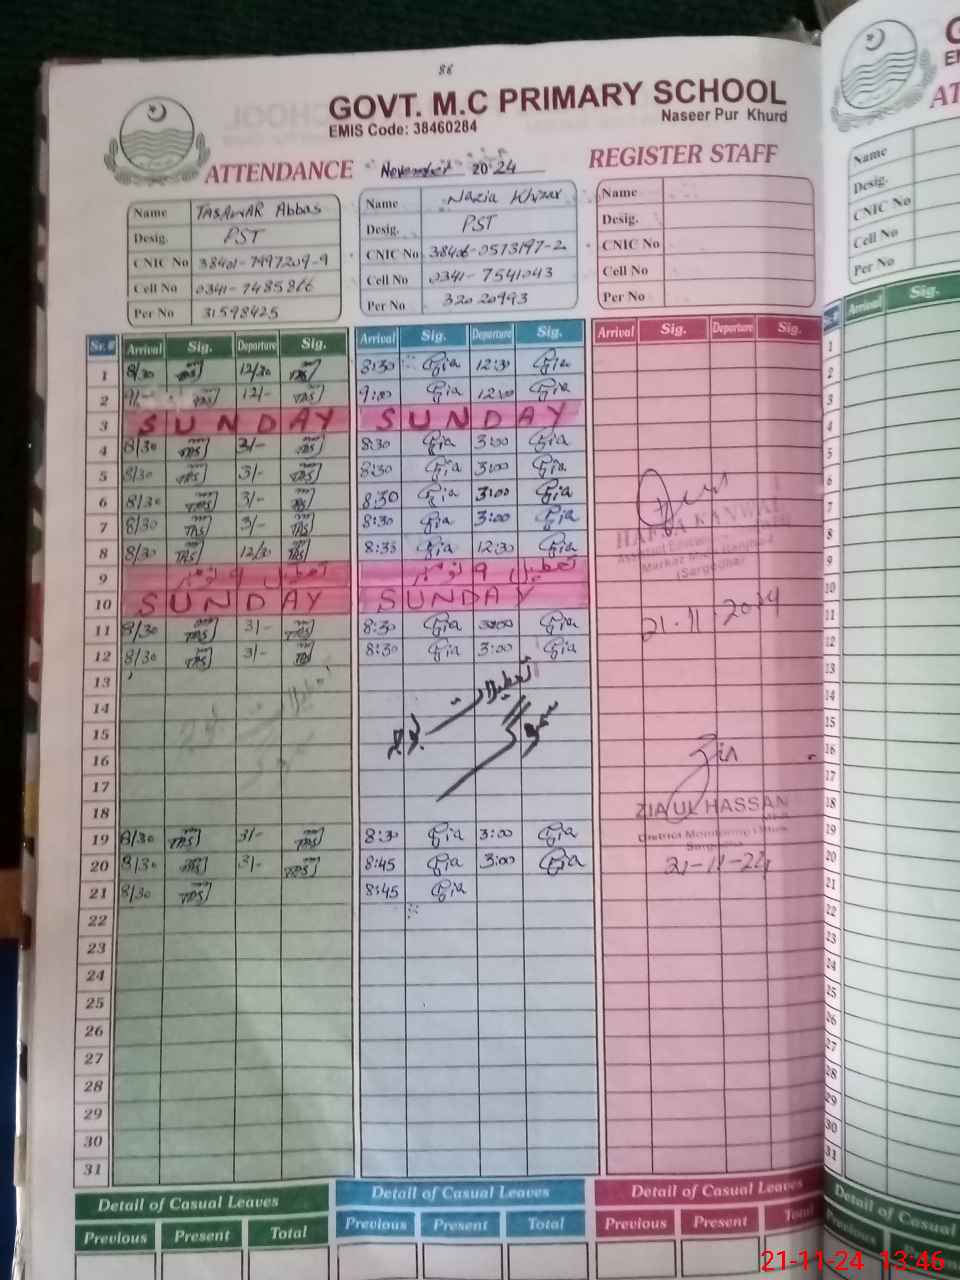 86
GOVT. M.C PRIMARY SCHOOL
EMIS Code: 38460284 Naseer Pur Khurd
ATTENDANCE November 2024 REGISTER STAFF
Name TASAWAR Abbas
Desig. PST
CNIC No 38401-7997209-9
Cell No 0341-7485866
Per No 31598425
Name Nazia Khizar
Desig. PST
CNIC No 38406-0573197-2
Cell No 0341-7541043
Per No 32020993
Name
Desig.
CNIC No
Cell No
Per No
Sr.# Arrival Sig. Departure Sig. Arrival Sig. Departure Sig. Arrival Sig. Departure Sig.
1 8/30 12/30 8:30 12:30
2 9/- 12/- 9:00 12:00
3 SUNDAY SUNDAY
4 8/30 3/- 8:30 3:00
5 8/30 3/- 8:30 3:00
6 8/30 3/- 8:30 3:00
7 8/30 3/- 8:30 3:00
8 8/30 12/30 8:30 12:30
9 تعطیل 9 نومبر تعطیل 9 نومبر
10 SUNDAY SUNDAY
11 8/30 3/- 8:30 3:00
12 8/30 3/- 8:30 3:00
13
14 تعطیلات
15
16
17
18
19 8/30 3/- 8:30 3:00
20 8/30 3/- 8:45 3:00
21 8/30 8:45
22
23
24
25
26
27
28
29
30
31
KANWAL
(Sargodha)
21.11.2024
ZIA UL HASSAN
District Monitoring Officer
Sargodha
21-11-24
Detail of Casual Leaves Detail of Casual Leaves Detail of Casual Leaves
Previous Present Total Previous Present Total Previous Present Total
Name
Desig.
CNIC No
Cell No
Per No
Arrival Sig.
1
2
3
4
5
6
7
8
9
10
11
12
13
14
15
16
17
18
19
20
21
22
23
24
25
26
27
28
29
30
31
Detail of Casual
Previous
21-11-24 13:46